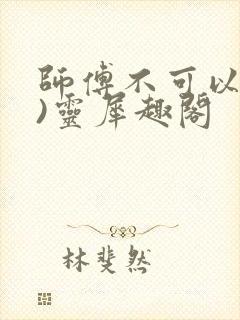 師傅不可以
)靈犀趣閣
林斐然